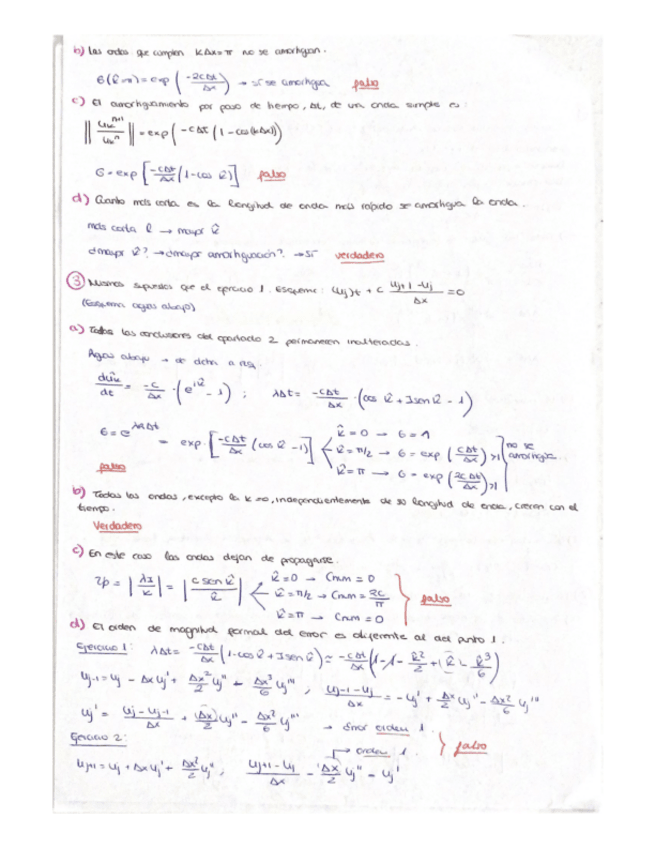 b) Las ondas que cumplen KΔx=π no se amortiguan.
G(k̂=π)=exp(-2cΔt/Δx) → sí se amortigua falso
c) El amortiguamiento por paso de tiempo, Δt, de una onda simple es:
‖ûₖⁿ⁺¹/ûₖⁿ‖ = exp(-cΔt(1-cos(kΔx)))
G=exp[-cΔt/Δx(1-cos k̂)] falso
d) Cuanto más corta es la longitud de onda más rápido se amortigua la onda.
más corta l → mayor k̂
¿mayor k̂? → ¿mayor amortiguación? → Sí verdadero
③ Mismos supuestos que el ejercicio 1. Esquema: (uj)t + c (uj+1 - uj)/Δx = 0
(Esquema aguas abajo)
a) Todas las conclusiones del apartado 2 permanecen inalteradas.
Aguas abajo →
dûₖ/dt = -c/Δx · (e^(ik̂) - 1) ; λΔt = -cΔt/Δx · (cos k̂ + I sen k̂ - 1)
G = e^(λRΔt) = exp·[-cΔt/Δx (cos k̂ - 1)]
k̂=0 → G=1
k̂=π/2 → G=exp(cΔt/Δx)>1
k̂=π → G=exp(2cΔt/Δx)>1
no se amortigua
falso
b) Todas las ondas, excepto la k=0, independientemente de su longitud de onda, crecen con el
tiempo.
Verdadero
c) En este caso las ondas dejan de propagarse.
vp = |λI/k| = |c sen k̂/k̂|
k̂=0 → Cnum = 0
k̂=π/2 → Cnum = 2c/π
k̂=π → Cnum = 0
falso
d) El orden de magnitud formal del error es diferente al del punto 1.
Ejercicio 1: λΔt = -cΔt/Δx (1-cos k̂ + I sen k̂) ≈ -cΔt/Δx
uj-1 = uj - Δx uj' + Δx²/2 uj'' - Δx³/6 uj''' ; (uj-1 - uj)/Δx = -uj' + Δx/2 uj'' - Δx²/6 uj'''
uj' = (uj - uj-1)/Δx + (Δx)/2 uj'' - Δx²/6 uj''' → Error orden 1
Ejercicio 2: → orden 1. falso
uj+1 = uj + Δx uj' + Δx²/2 uj'' ; (uj+1 - uj)/Δx - Δx/2 uj'' = uj'